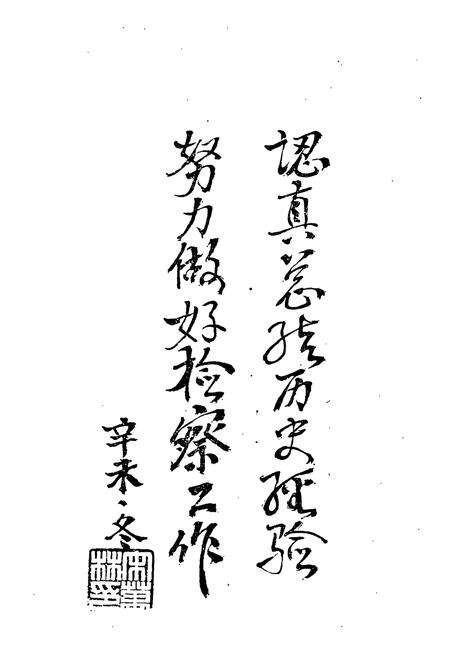 認真总结历史经验
努力做好检察工作
辛未冬